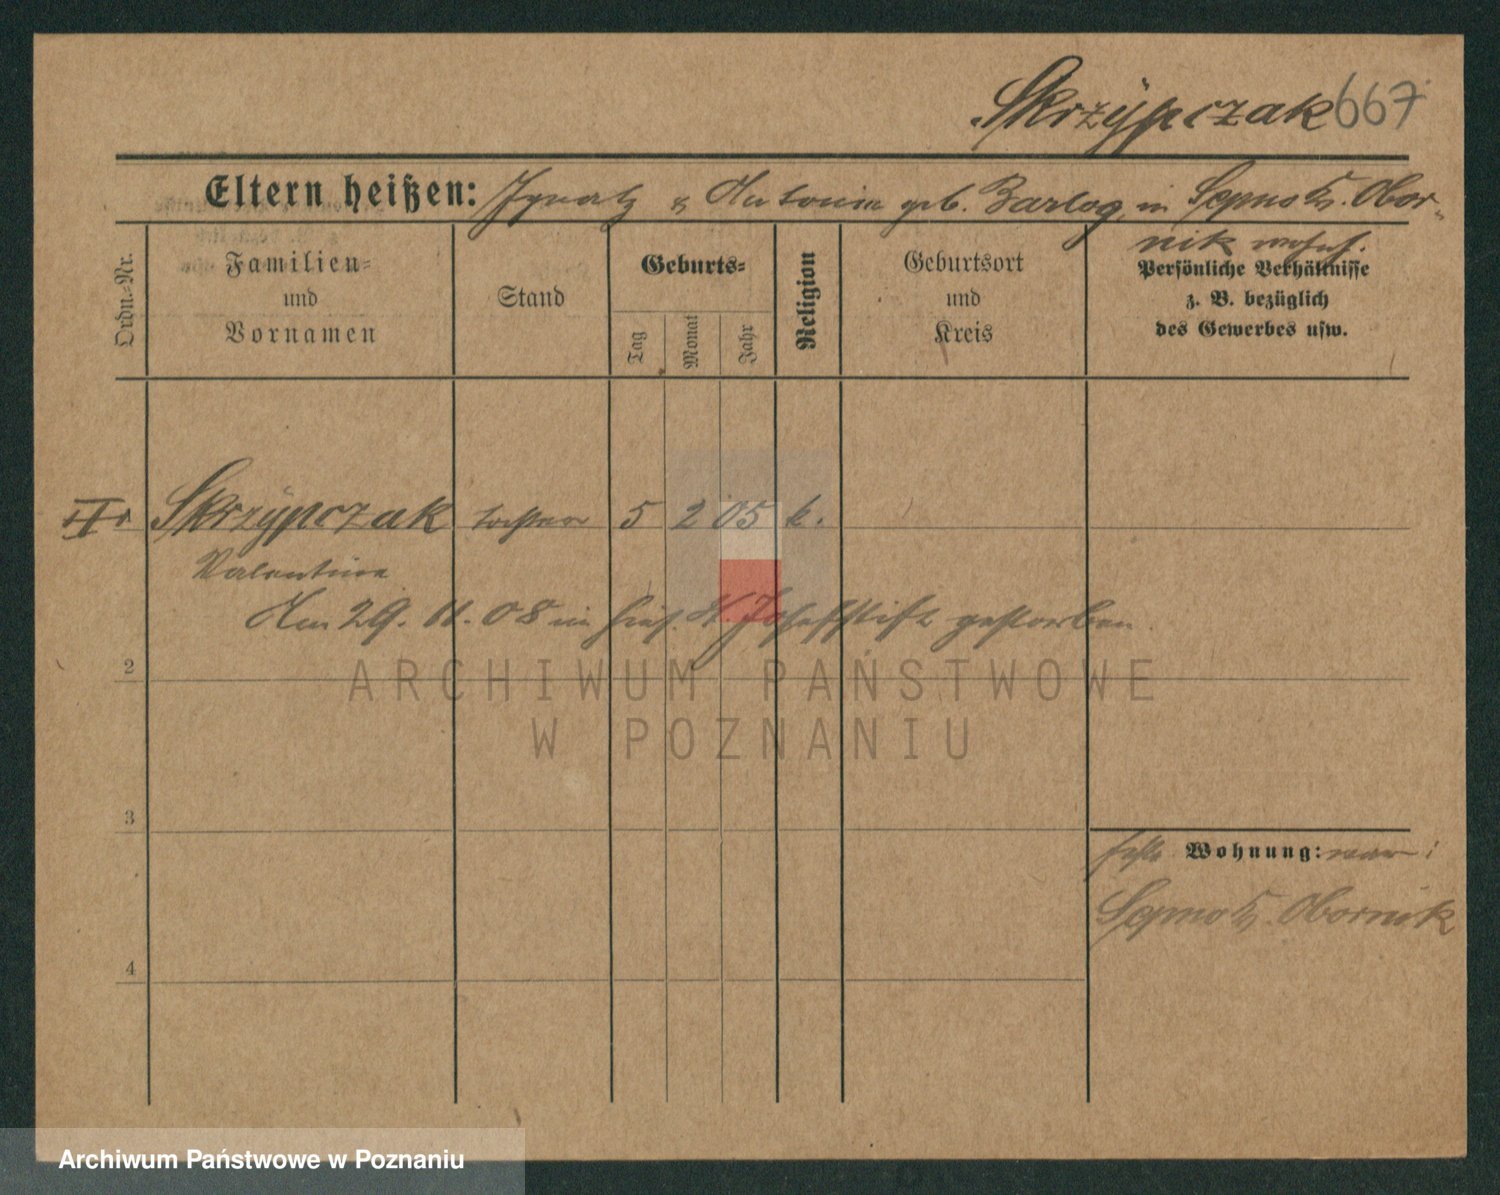 Skrzÿpczak 667
Eltern heißen: Ignatz & Antonie geb. Barlog, in Sepno Kr. Obor-
nik wohnh.
Ordn.-Nr.
Familien-
und
Vornamen
Stand
Geburts-
Tag
Monat
Jahr
Religion
Geburtsort
und
Kreis
Persönliche Verhältnisse
z. B. bezüglich
des Gewerbes usw.
Skrzÿpczak Tochter 5 2 05 k.
Valentine
Am 29. 11. 08 im hies. St Josefstift gestorben.
2
3
4
Wohnung: war:
Sepno Kr. Obornik
ARCHIWUM PAŃSTWOWE
W POZNANIU
Archiwum Państwowe w Poznaniu